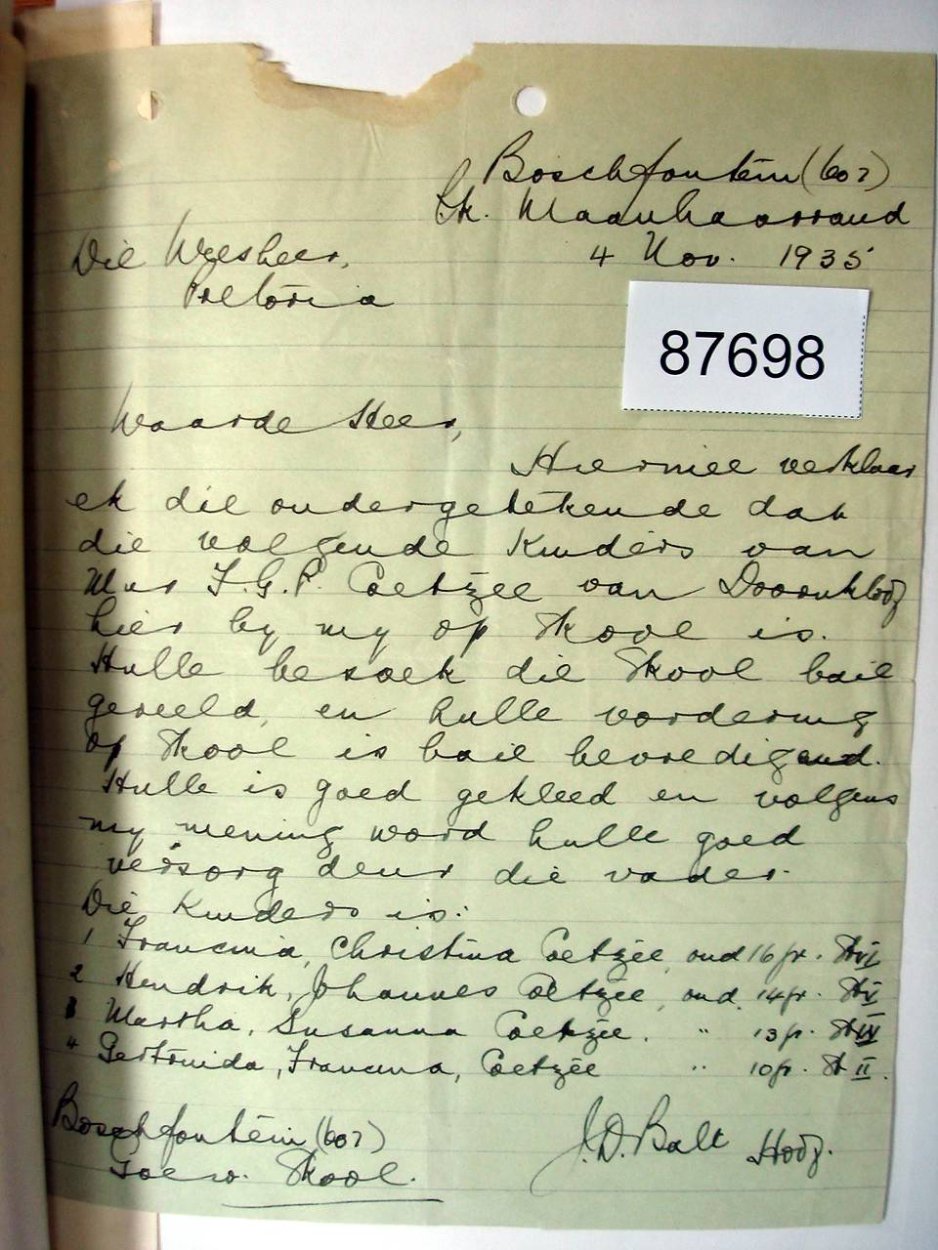 Boschfontein (607)
Sk. Maanhaarrand
Die Weesheer,
4 Nov. 1935
Pretoria
87698
Waarde Heer,
Hiermee verklaar
ek die ondergetekende dat
die volgende Kinders van
Mnr F.G.P. Coetzee van Doornkloof
hier by my op Skool is.
Hulle besoek die Skool baie
gereeld, en hulle vordering
op Skool is baie bevredigend.
Hulle is goed gekleed en volgens
my mening word hulle goed
versorg deur die vader.
Die Kinders is:
1 Francina, Christina Coetzee, oud 16 jr. St VI
2 Hendrik, Johannes Coetzee, oud 14 jr. St V
3 Martha, Susanna Coetzee. " 13 jr. St IV
4 Gertruida, Francina, Coetzee " 10 jr. St II.
Boschfontein (607)
J.D. Balt Hoof.
Goew. Skool.